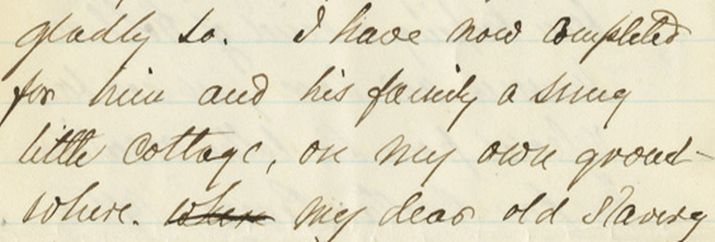 gladly so. I have now completed
for him and his family a snug
little cottage, on my own ground-
where. where my dear old